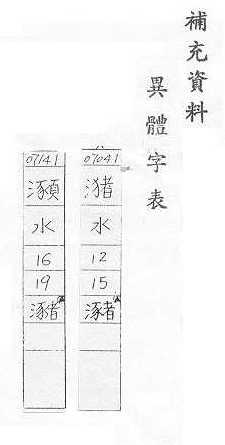 補充資料
異體字表
07041
潴
水
12
15
瀦
07141
水
16
19
瀦